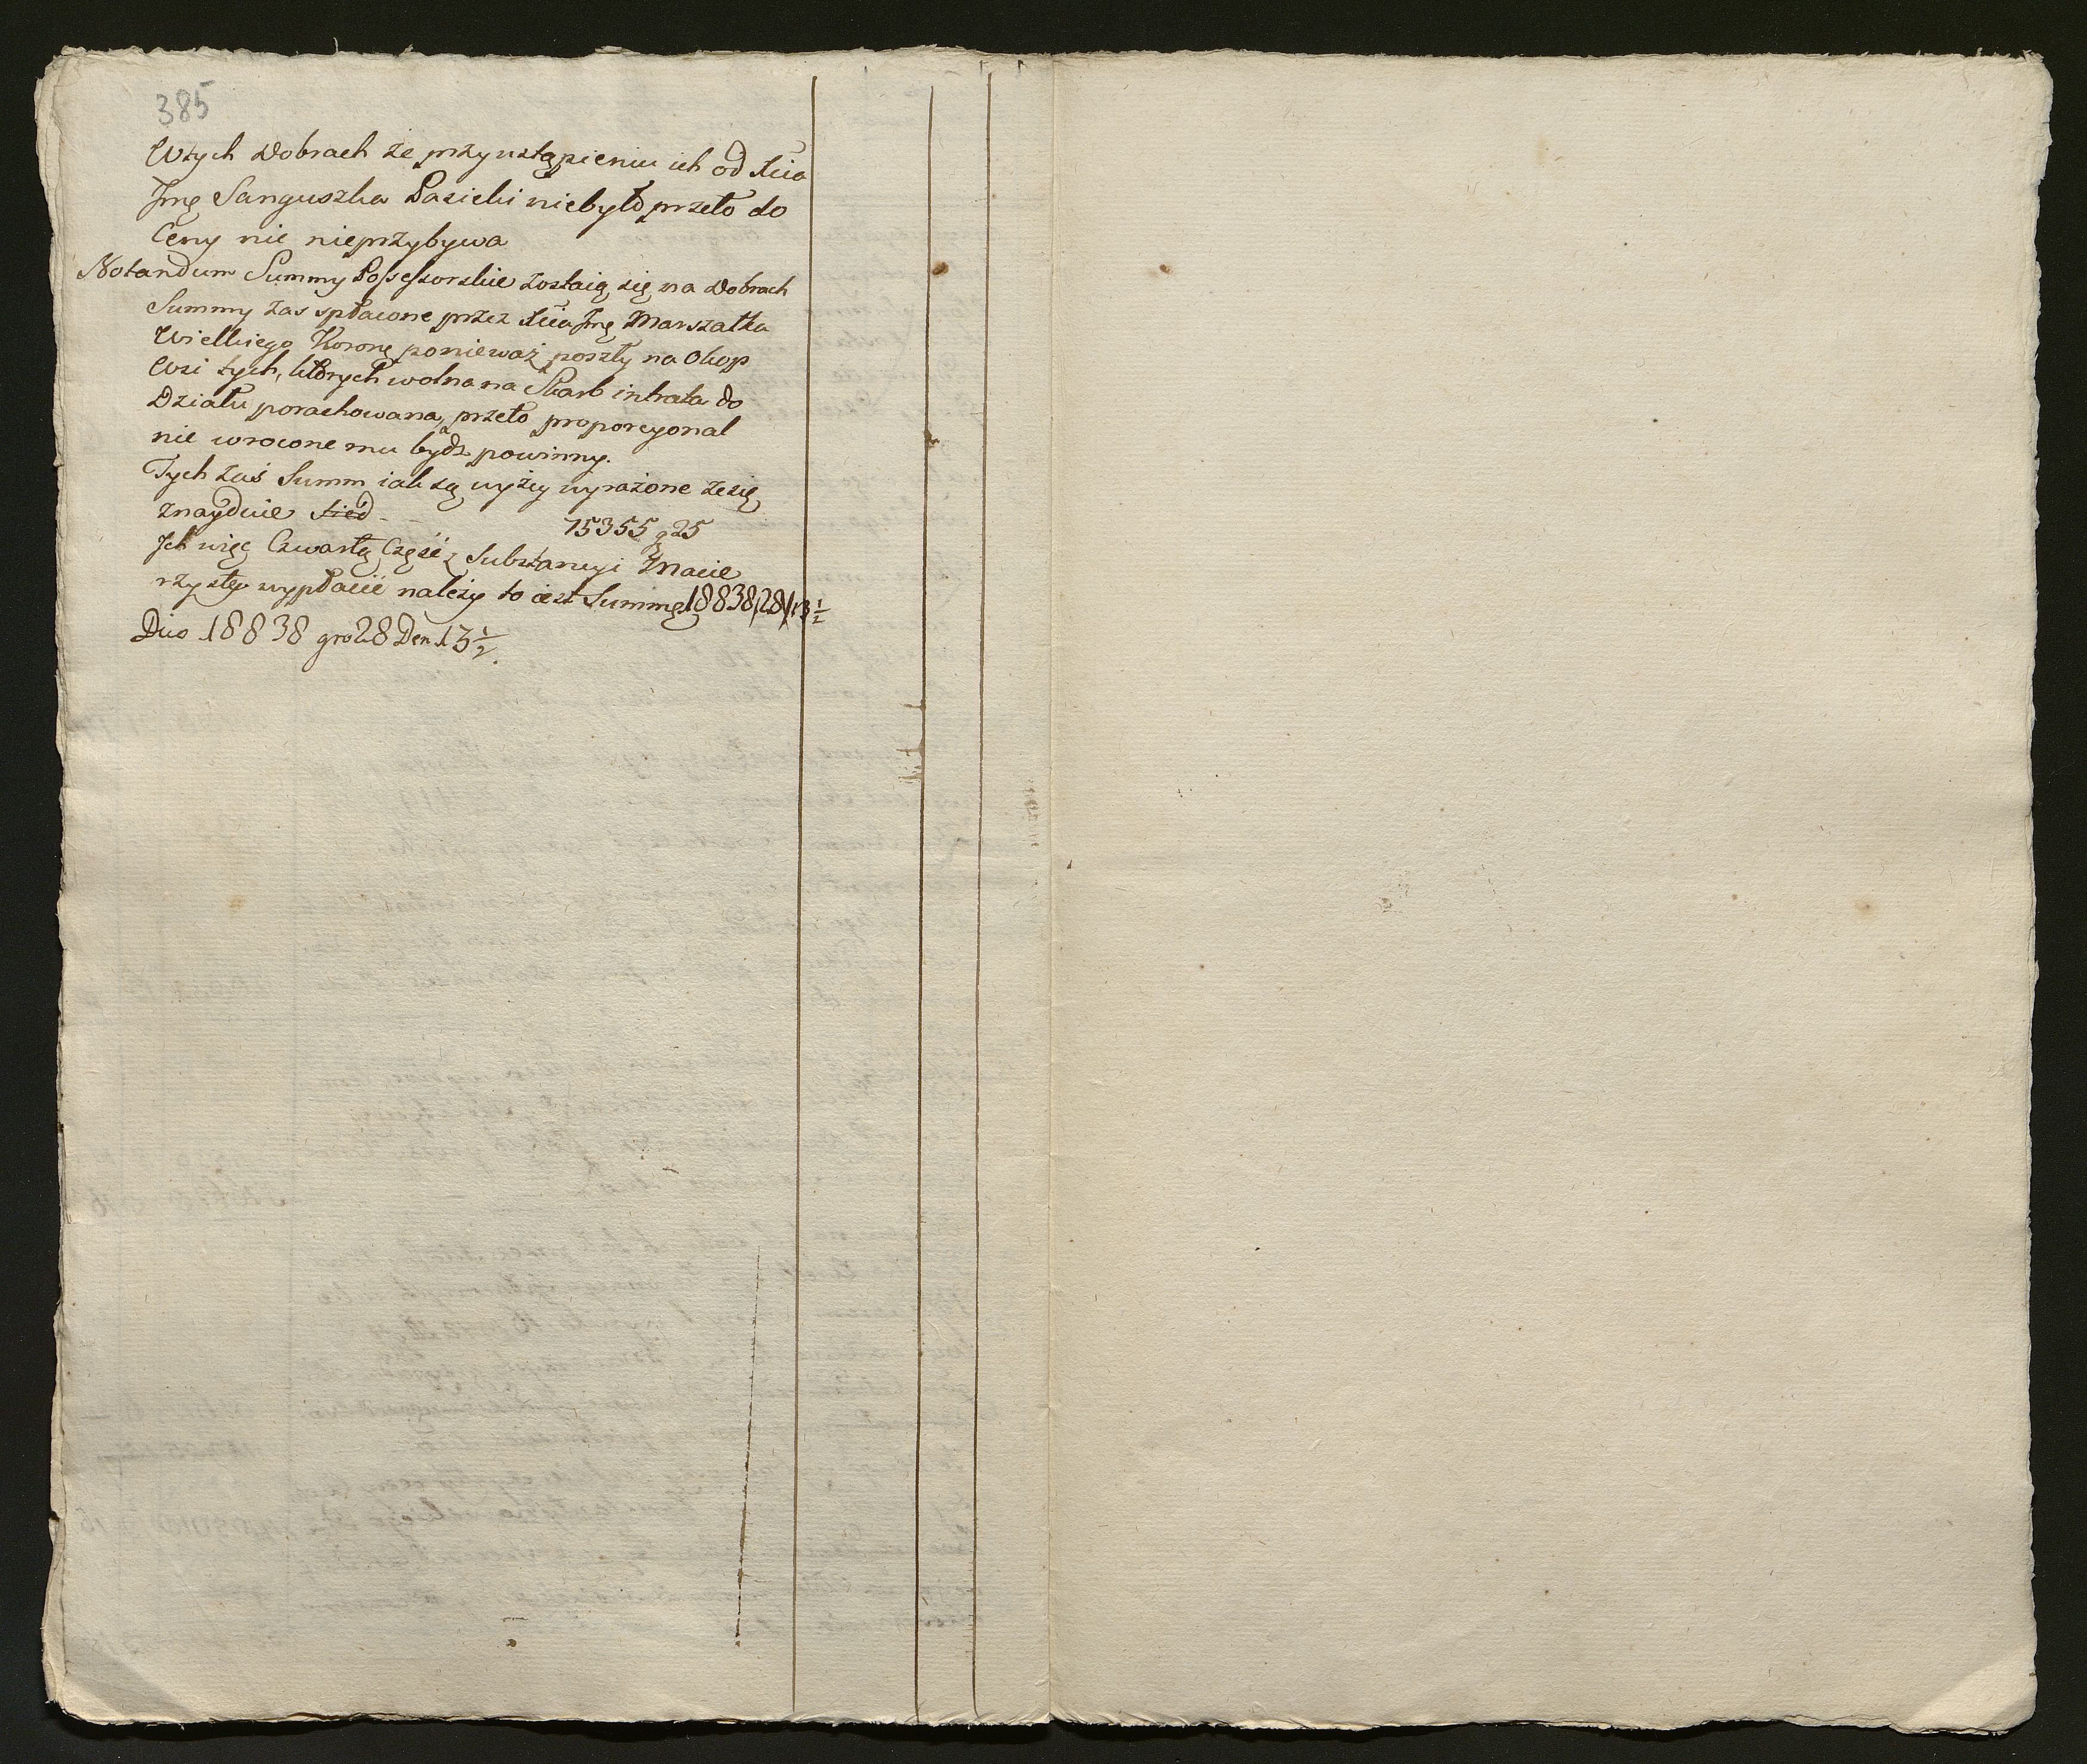 385
Wtych Dobrach że przyustąpieniu ich od Xcia
Jmę Sanguszka Pasieki niebyło przeto do
Ceny nic nieprzybywa
Notandum Summy Possessorskie zostaią się na Dobrach
Summy zas spłacone przez Xcia Jmę Marszałka
Wielkiego Koronę ponieważ poszły na Okop
Wsi tych, ktorych wolna na Skarb intrata do
Działu porachowana, przeto proporcyonal
nie wrocone mu bydz powinny.
Tych zaś Summ iak są wyżey wyrażone że się
znayduie 75355 g 25
Ich więc Czwartą Część z Substancyi Macie
rzystey wypłacić należy to iest Summę 18838 | 28 | 13 1/2
Duo 18838 gro 28 Den 13 1/2.